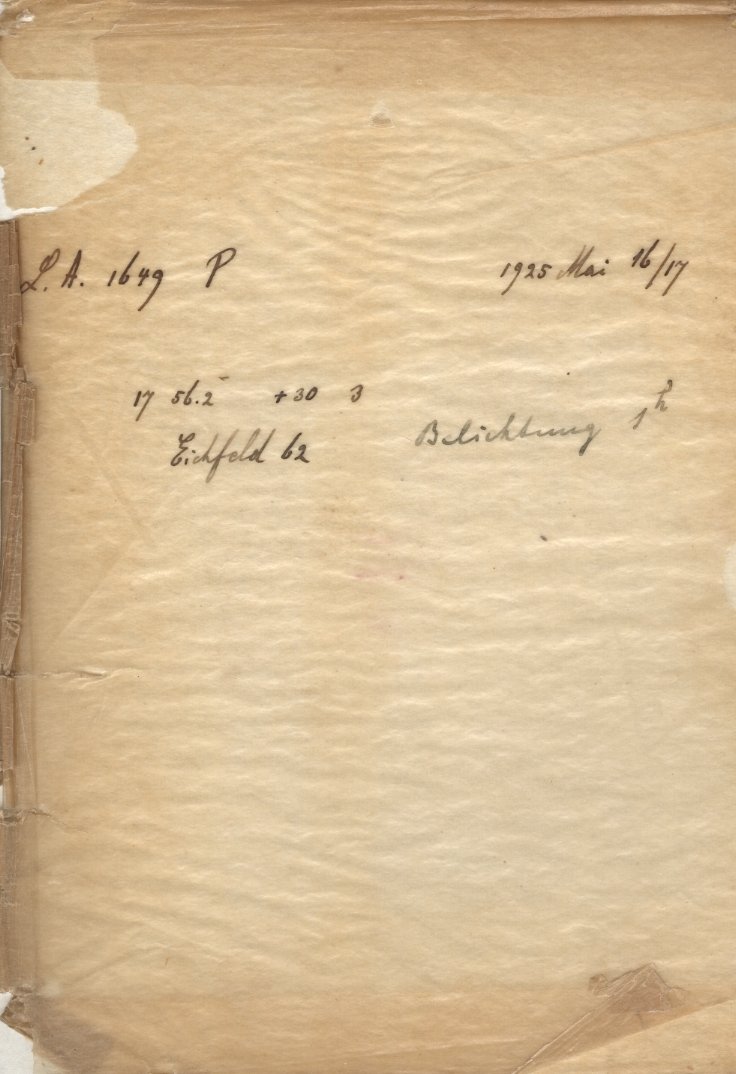 L. A. 1649 P 1925 Mai 16/17
17 56.2 +30 3
Eichfeld 62 Belichtung 1h